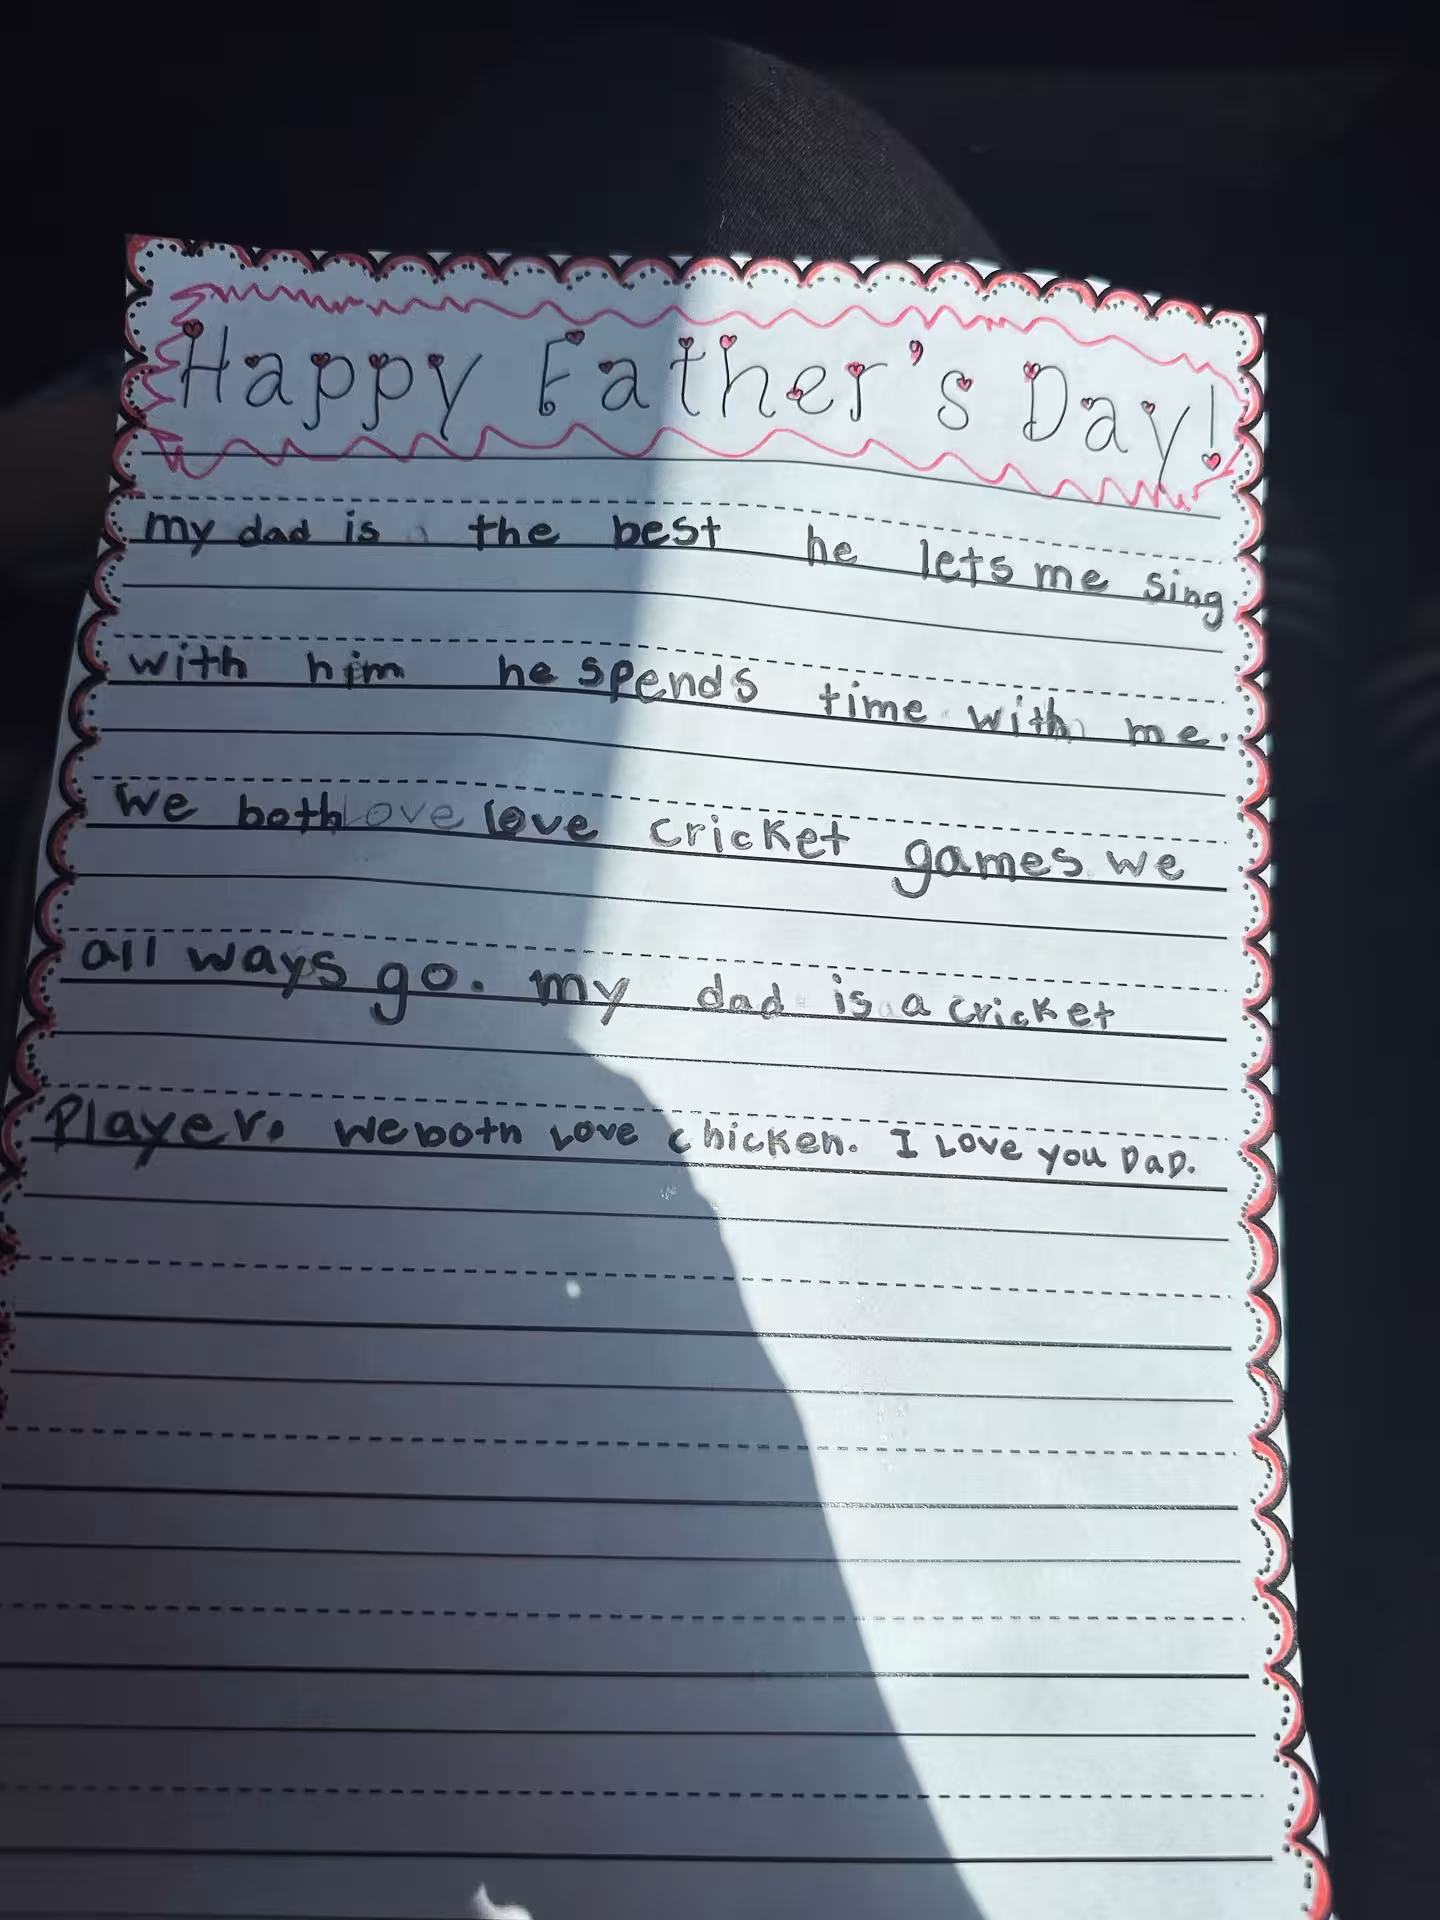 Happy Father's Day!
my dad is the best he lets me sing.
with him he spends time with me.
we both love love cricket games we
all ways go. my dad is a cricket
Player. We both Love chicken. I Love you DaD.